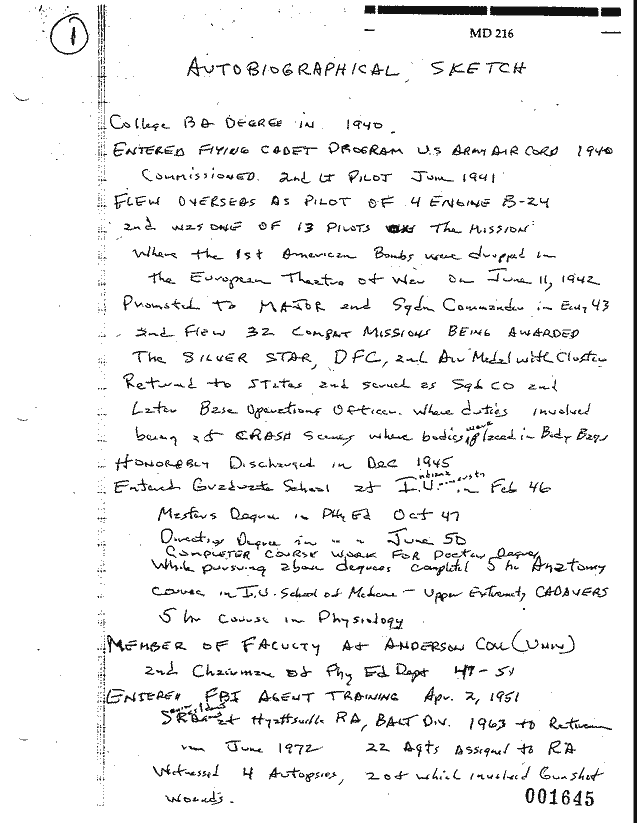 1
MD 216
AUTOBIOGRAPHICAL SKETCH
College BA DEGREE IN 1940.
ENTERED FLYING CADET PROGRAM U.S ARMY AIR CORP 1940
COMMISSIONED 2nd LT PILOT June 1941
FLEW OVERSEAS AS PILOT OF 4 ENGINE B-24
and WAS ONE OF 13 PILOTS ON The MISSION
Where the 1st American Bombs were dropped in
the European Theatre of War on June 11, 1942
Promoted TO MAJOR and Sqdn Commander in Early 43
and Flew 32 COMBAT MISSIONS BEING AWARDED
The SILVER STAR, DFC, and Air Medal with Cluster
Returned to States and served as Sqd CO and
Later Base Operations Officer. where duties involved
being at CRASH Scenes where bodies were placed in Body Bags
HONORABLY Discharged in Dec 1945
Entered Graduate School at I.U. Indiana University in Feb 46
Masters Degree in Phy Ed Oct 47
Degree in " " June 50
COMPLETED COURSE WORK FOR Doctor Degree
While pursuing above degrees completed 5 hr Anatomy
course in I.U. School of Medicine - Upper Extremity CADAVERS
5 hr Course in Physiology
MEMBER OF FACULTY At ANDERSON COLL (UNIV)
and Chairman of Phy Ed Dept 47-51
ENTERED FBI AGENT TRAINING Apr. 2, 1951
Senior Resident SRA at Hyattsville RA, BALT DIV. 1963 to
June 1972 22 Agts Assigned to RA
Witnessed 4 Autopsies, 2 of which involved Gunshot
Wounds.
001645